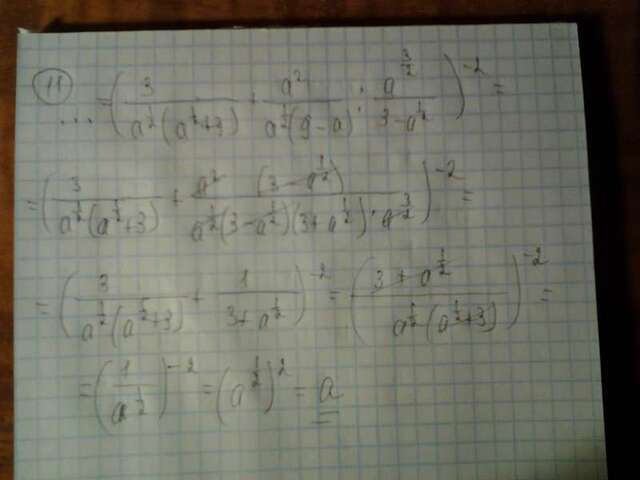 11 ... = (3/(a^(1/2)(a^(1/2)+3)) + a^2/(a^(1/2)(9-a)) : a^(3/2)/(3-a^(1/2)))^(-2) =
= (3/(a^(1/2)(a^(1/2)+3)) + a^2(3-a^(1/2))/(a^(1/2)(3-a^(1/2))(3+a^(1/2))·a^(3/2)))^(-2) =
= (3/(a^(1/2)(a^(1/2)+3)) + 1/(3+a^(1/2)))^(-2) = ((3+a^(1/2))/(a^(1/2)(a^(1/2)+3)))^(-2) =
= (1/a^(1/2))^(-2) = (a^(1/2))^2 = a